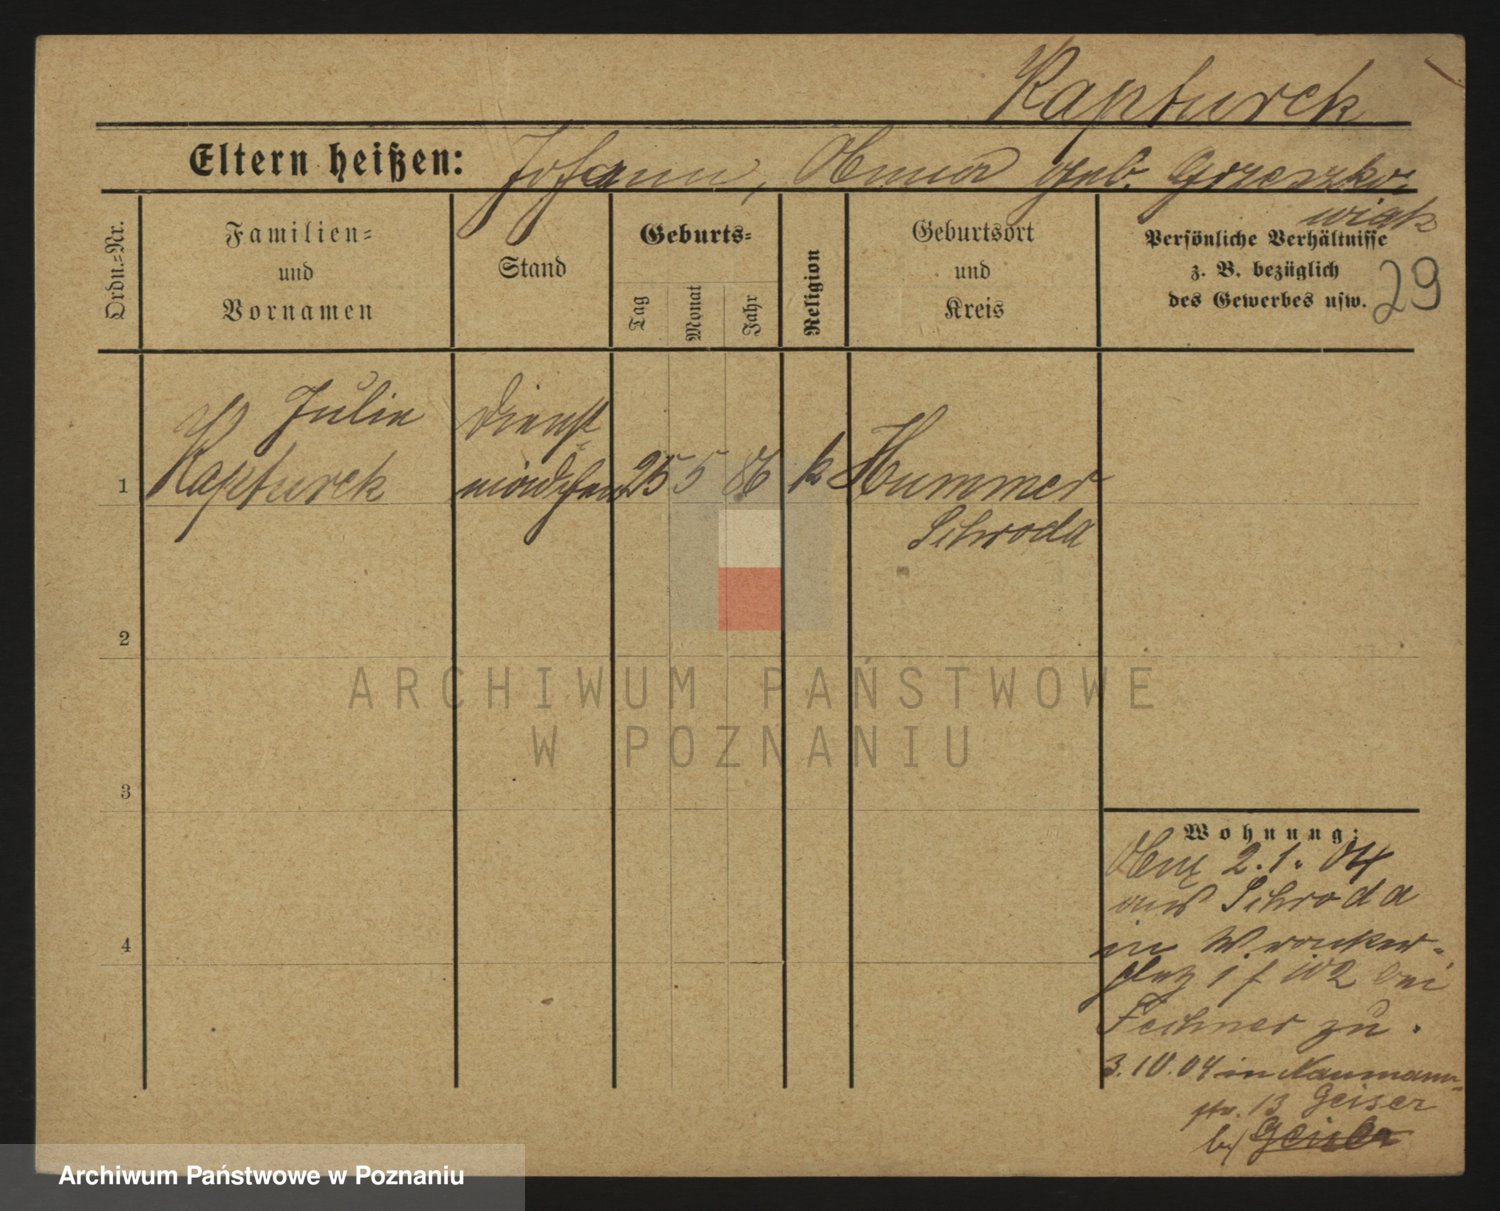 Kapturek
Eltern heißen: Johann, Anna geb. Grzeszko-
wiak
Ordn.-Nr.
Familien-
und
Vornamen
Stand
Geburts-
Tag
Monat
Jahr
Religion
Geburtsort
und
Kreis
Persönliche Verhältnisse
z. B. bezüglich
des Gewerbes usw.
29
Julie
Kapturek
Dienst
mädchen
1
25 5 86 k Hummer
Schroda
2
ARCHIWUM PAŃSTWOWE
W POZNANIU
3
4
Wohnung:
2.1.04
aus Schroda
in Wronker-
platz 1 f 102 bei
Fechner zu.
3.10.04 in Naumann-
str. 13 Geiser
b/
Archiwum Państwowe w Poznaniu